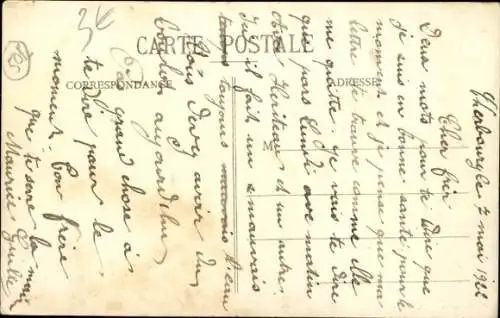 CARTE POSTALE
CORRESPONDANCE
ADRESSE
M
Cherbourg le 7 mai 1922
Cher frère
Deux mots pour te dire que
je suis en bonne santé pour le
moment et je pense que ma
lettre te trouve comme elle
me quitte. Je vais te dire
que pars lundi matin
avec et un autre.
Ici il fait un mauvais
temps toujours de l'eau
Vous devez avoir du
aujourd'hui
Pas grand chose à
te dire pour le
moment. Ton frère
que te serre la main
Maurice